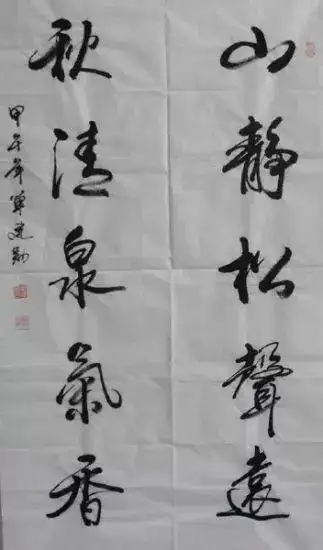 山靜松聲遠
秋清泉氣香
甲午年單建勛